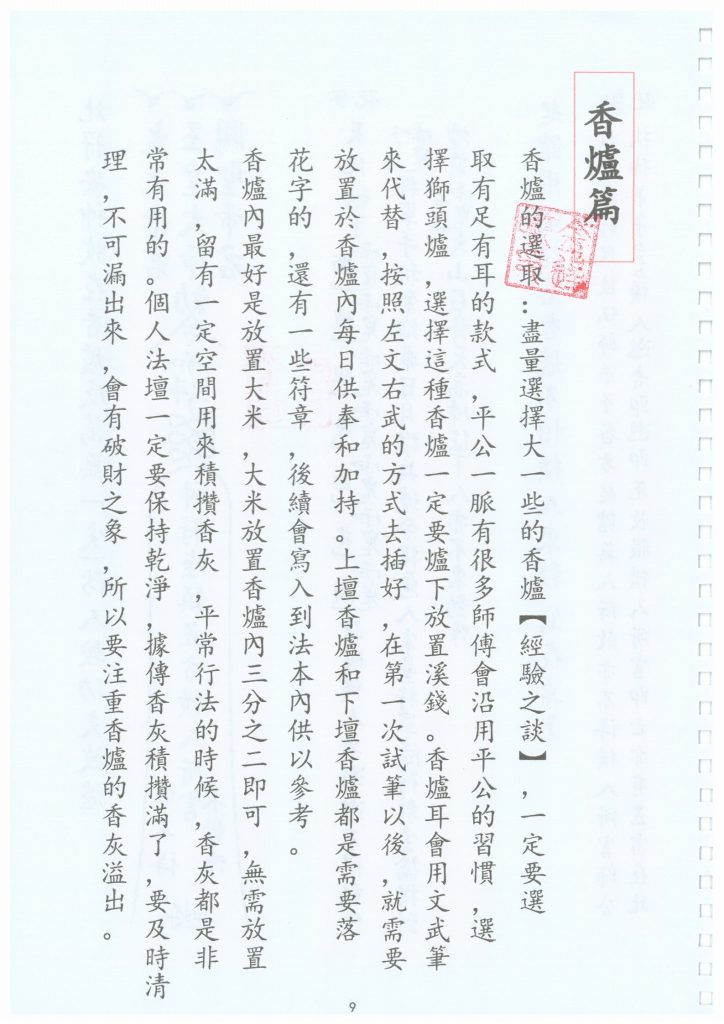 香爐篇
香爐的選取：盡量選擇大一些的香爐【經驗之談】，一定要選
取有足有耳的款式，平公一脈有很多師傅會沿用平公的習慣，選
擇獅頭爐，選擇這種香爐一定要爐下放置溪錢。香爐耳會用文武筆
來代替，按照左文右武的方式去插好，在第一次試筆以後，就需要
放置於香爐內每日供奉和加持。上壇香爐和下壇香爐都是需要落
花字的，還有一些符章，後續會寫入到法本內供以參考。
香爐內最好是放置大米，大米放置香爐內三分之二即可，無需放置
太滿，留有一定空間用來積攢香灰，平常行法的時候，香灰都是非
常有用的。個人法壇一定要保持乾淨，據傳香灰積攢滿了，要及時清
理，不可漏出來，會有破財之象，所以要注重香爐的香灰溢出。
9